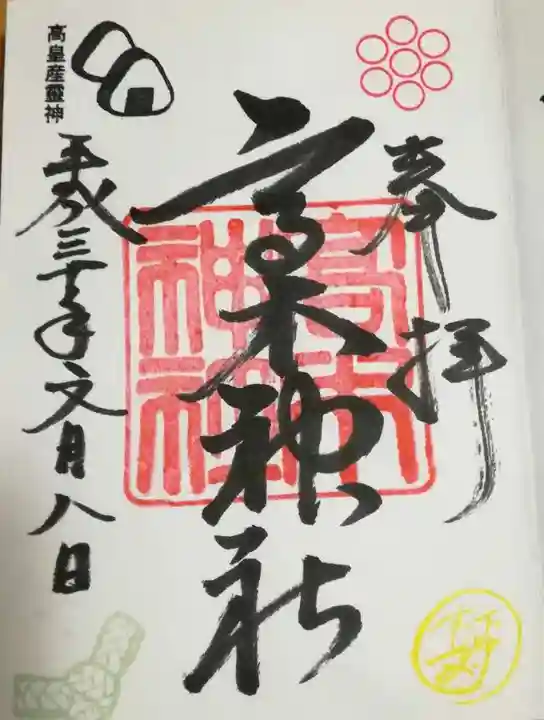 奉拝
高木神社
高木神社
高皇産靈神
平成三十年文月八日